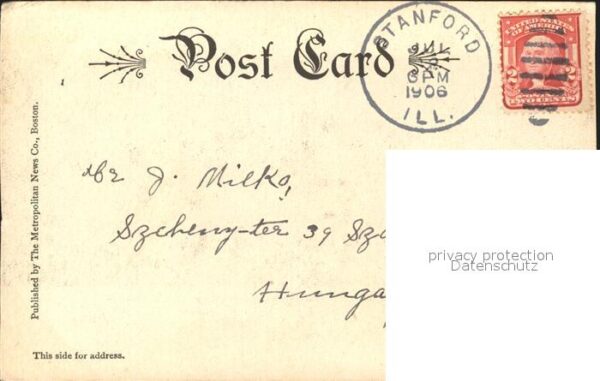 Post Card
STANFORD
JUL
6 PM
1906
ILL.
UNITED STATES
OF AMERICA
2 2
TWO CENTS
Published by The Metropolitan News Co., Boston.
Mr J. Milko,
Szecheny-ter 39 Sz
Hunga
privacy protection
Datenschutz
This side for address.